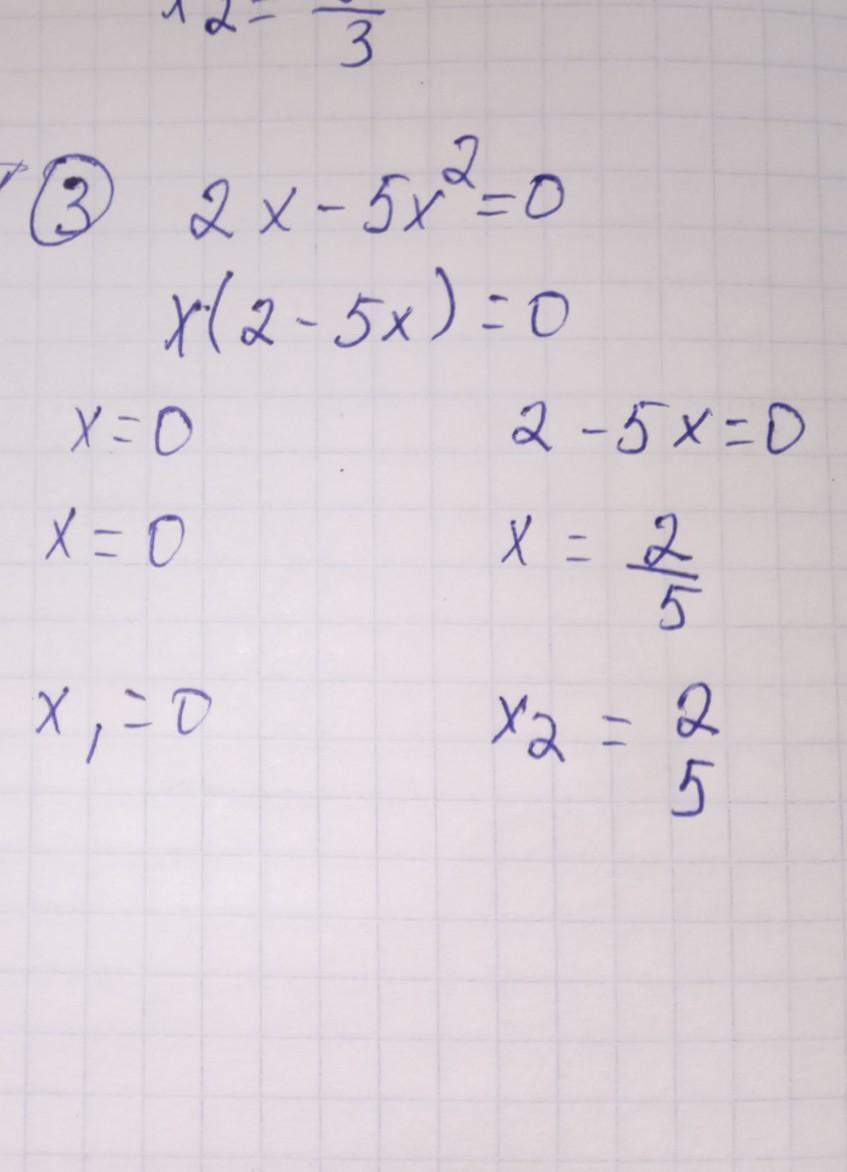 x2 = /3
③ 2x - 5x² = 0
x(2 - 5x) = 0
x = 0 2 - 5x = 0
x = 0 x = 2/5
x₁ = 0 x₂ = 2 5